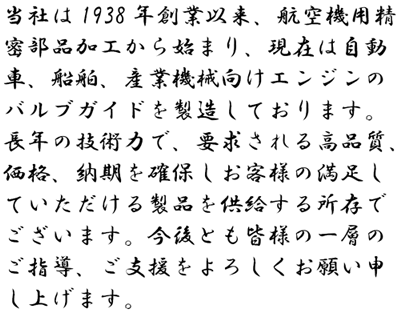 当社は1938年創業以来、航空機用精
密部品加工から始まり、現在は自動
車、船舶、産業機械向けエンジンの
バルブガイドを製造しております。
長年の技術力で、要求される高品質、
価格、納期を確保しお客様の満足し
ていただける製品を供給する所存で
ございます。今後とも皆様の一層の
ご指導、ご支援をよろしくお願い申
し上げます。